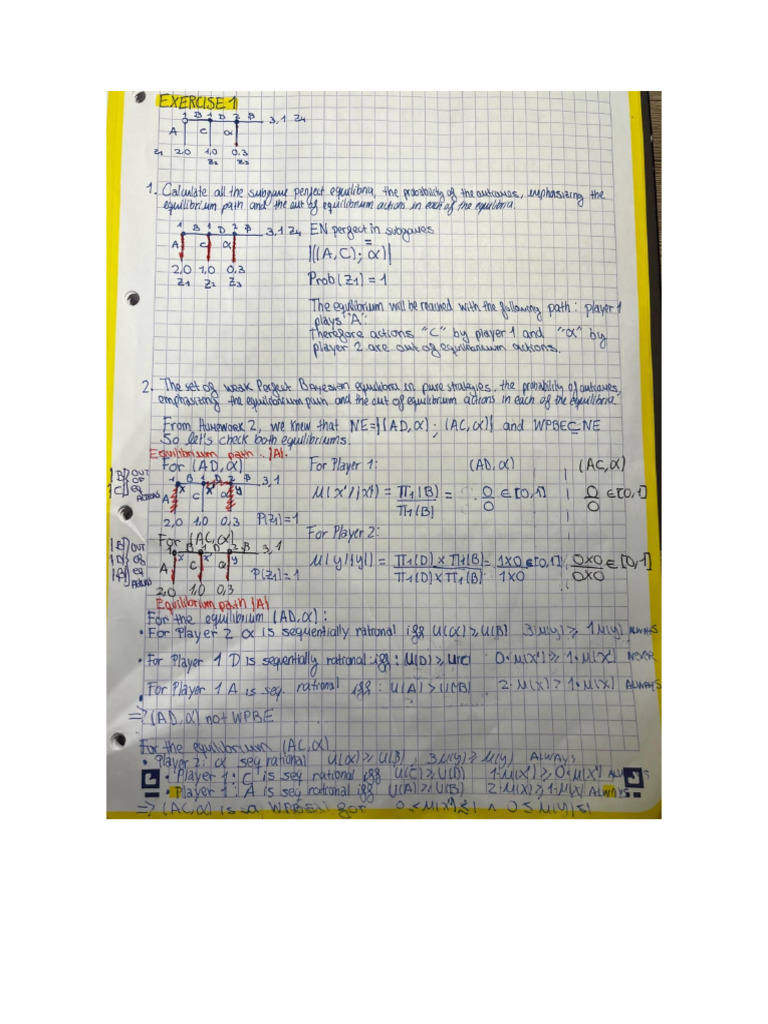 EXERCISE 1
1 B 1 D 2 B 3,1 Z4
A C α
Z1 2,0 1,0 0,3
Z2 Z3
1. Calculate all the subgame perfect equilibria, the probability of the outcomes, emphasizing the
equilibrium path and the out of equilibrium actions in each of the equilibria.
1 B 1 D 2 B 3,1 Z4
A C α
2,0 1,0 0,3
Z1 Z2 Z3
EN perfect in subgames
=
{(A,C); α)}
Prob(Z1) = 1
The equilibrium will be reached with the following path: player 1
plays "A".
Therefore actions "C" by player 1 and "α" by
player 2 are out of equilibrium actions.
2. The set of weak Perfect Bayesian equilibria in pure strategies, the probability of outcomes,
emphasizing the equilibrium path and the out of equilibrium actions in each of the equilibria.
From Homework 2, we knew that NE={(AD,α); (AC,α)} and WPBE⊆NE
So let's check both equilibriums.
Equilibrium path: {A}.
For (AD,α)
{B} OUT
OF
{C} EQ
ACTIONS
1 B 1 D 2 B 3,1
A x C x' α y
2,0 1,0 0,3 P(Z1)=1
For Player 1: (AD,α) (AC,α)
μ(x'/{x'}) = Π1(B)/Π1(B) = 0/0 ∈[0,1] 0/0 ∈[0,1]
For (AC,α)
{B} OUT
{D} OF
{B} EQ
1 B 1 D 2 B 3,1
x x' y
A C α P(Z1)=1
2,0 1,0 0,3
Equilibrium path {A}
For Player 2:
μ(y/{y}) = Π1(D) x Π1(B)/Π1(D) x Π1(B) = 1x0/1x0 ∈[0,1] 0x0/0x0 ∈[0,1]
For the equilibrium (AD,α):
• For Player 2 α is sequentially rational iff U(α)≥U(B) 3μ(y)≥1μ(y) ALWAYS
• For Player 1 D is sequentially rational iff: U(D)≥U(C) 0·μ(x')≥1·μ(x') NEVER
• For Player 1 A is seq. rational iff: U(A)≥U(B) 2·μ(x)≥1·μ(x) ALWAYS
⇒ (AD,α) not WPBE
For the equilibrium (AC,α)
• Player 2: α seq rational U(α)≥U(B) 3μ(y)≥μ(y) ALWAYS
• Player 1: C is seq rational iff U(C)≥U(D) 1·μ(x')≥0·μ(x')
• Player 1: A is seq rational iff U(A)≥U(B) 2·μ(x)≥1·μ(x) ALWAYS
⇒ (AC,α) is a WPBEN for 0≤μ(x')≤1 ∧ 0≤μ(y)≤1